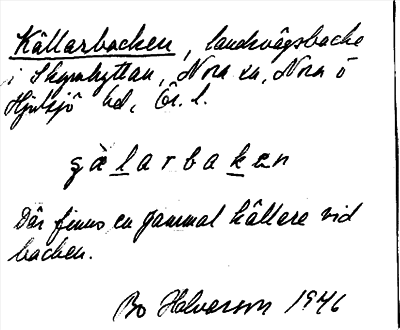 Källarbacken, landsvägsbacke
i Skyrohyttan, Nora sn, Nora o
Hjulsjö hd, Ör. l.
gälarbaken
Där finns en gammal källare vid
backen.
Bo Halvarson 1946